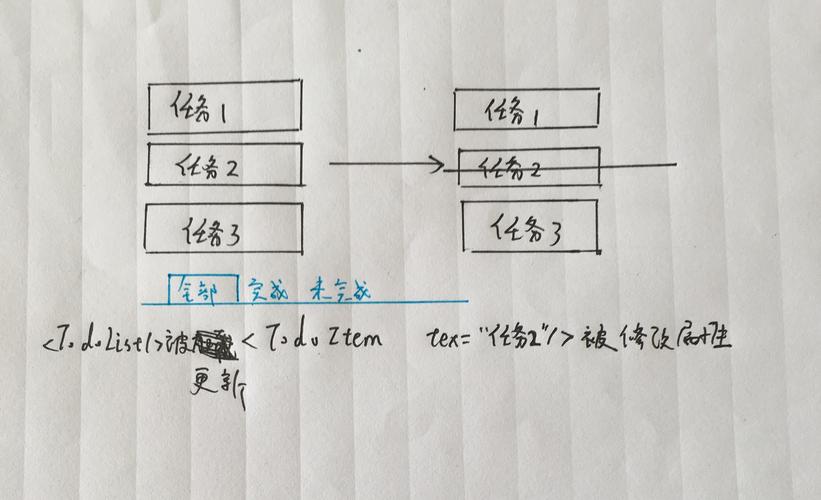 任务1
任务2
任务3
任务1
任务2
任务3
全部 完成 未完成
<TodoList/>被更新
<TodoItem tex="任务2"/>被修改属性